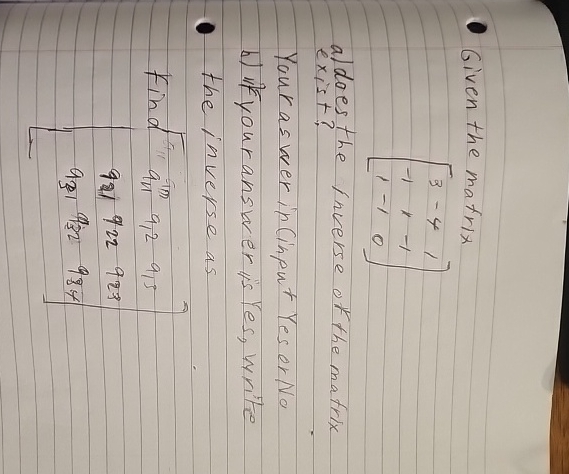 Given the matrix
3 -4 1
-1 1 -1
1 -1 0
a) does the inverse of the matrix
exist?
Your aswer in (input Yes or No
b) if your answer is Yes, write
the inverse as
Find a11 a12 a13
a21 a22 a23
a31 a32 a34